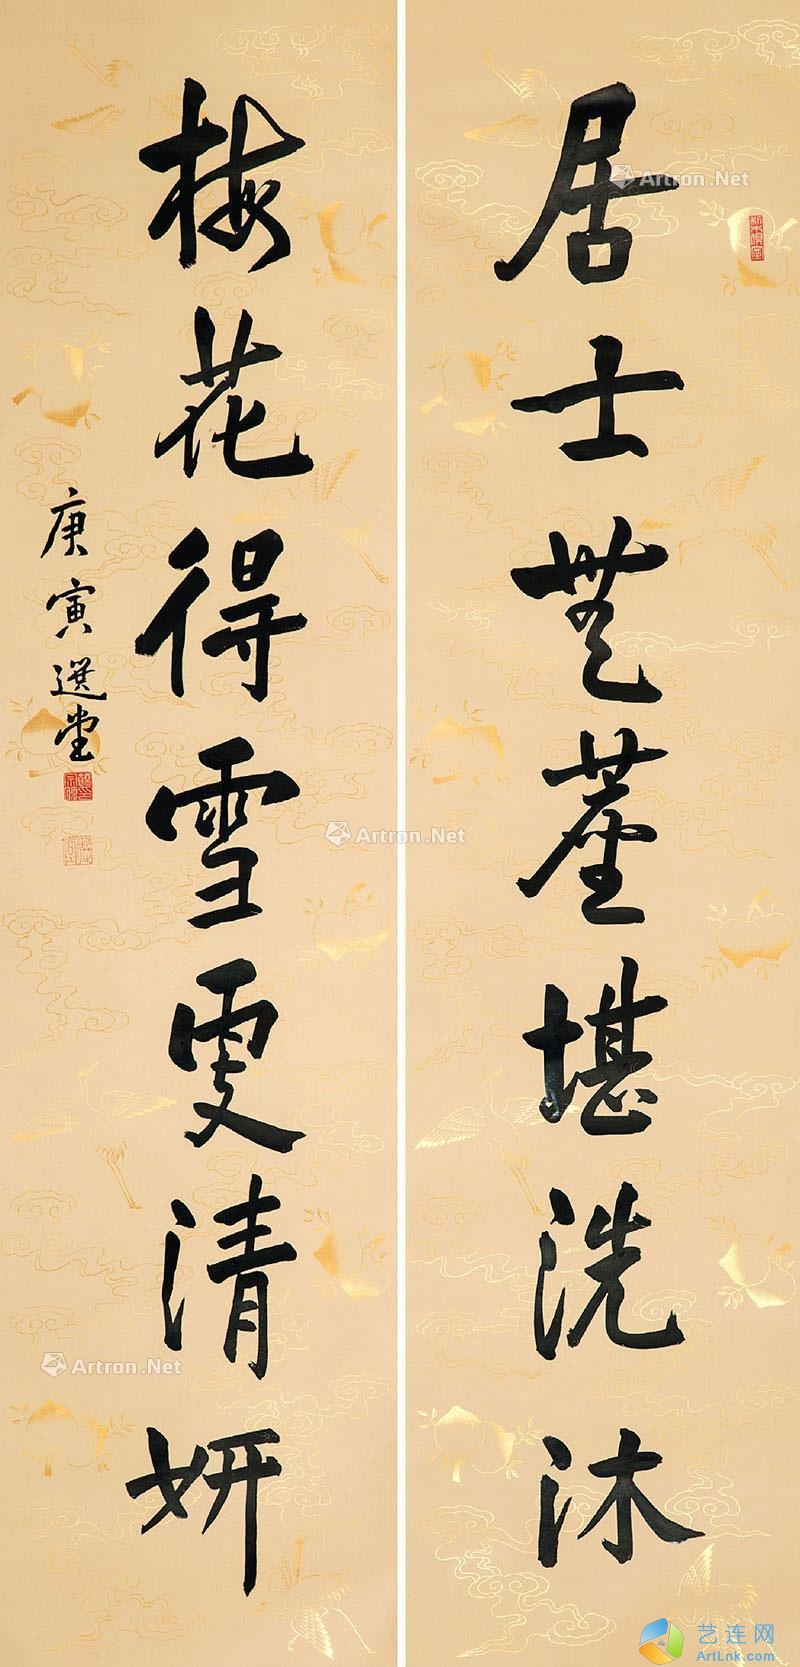 居士無塵堪洗沐
梅花得雪更清妍
庚寅選堂
Artron.Net
Artron.Net
Artron.Net
艺连网
ArtLnk.com